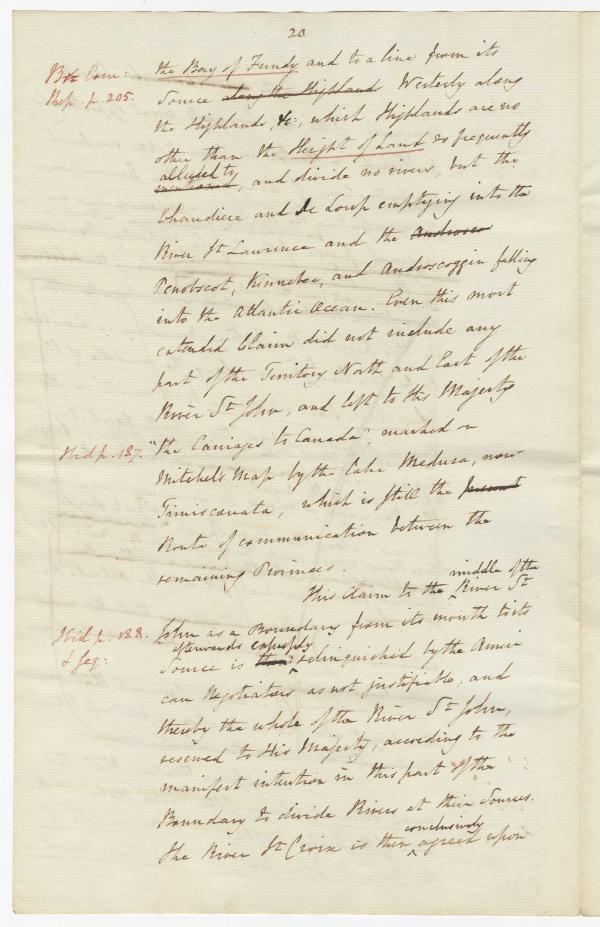 20
Br Com:
Rep. p. 205.
the Bay of Fundy and to a line from its
Source along the Highland Westerly along
the Highlands, &c, which Highlands are no
other than the Height of Land so frequently
alluded to
mentioned, and divide no rivers, but the
Chaudiere and De Loup emptying into the
River St Laurence and the Androsco
Penobscot, Kennebec, and Androscoggin falling
into the Atlantic Ocean. Even this most
extended Claim did not include any
part of the Territory North and East of the
River St John, and left to His Majesty
Ibid p. 187.
"the Carriages to Canada", marked on
Mitchels Map by the Lake Medusa, now
Timiscouata, which is still the present
Route of communication between the
remaining Provinces.
middle of the
This Claim to the River St
Ibid p. 188.
& seq:
John as a Boundary from its mouth to its
afterwards expressly
Source is then relinquished by the Ameri
can Negotiators as not justifiable, and
thereby the whole of the River St John,
reserved to His Majesty, according to the
manifest intention in this part of the
Boundary to divide Rivers at their Sources.
conclusively
The River St Croix is then agreed upon